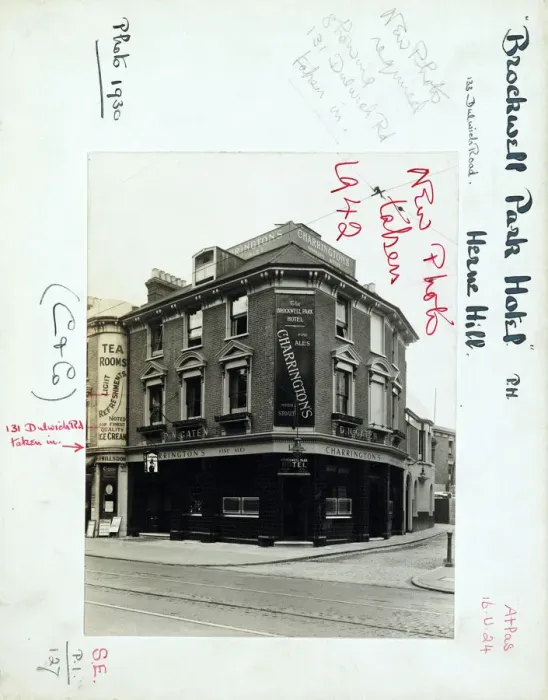 "Brockwell Park Hotel" P.H.
133 Dulwich Road.
Herne Hill.
Photo 1930
New Photo
required
showing
131 Dulwich Rd
taken in.
New Photo
taken
1942
(C+6)
131 Dulwich Rd
taken in.
CHARRINGTON'S
CHARRINGTON'S
The
BROCKWELL PARK
HOTEL
ALES
CHARRINGTON'S
STOUT
TEA
ROOMS
LIGHT
REFRESHMENTS
NOTED
FOR FINEST
QUALITY
ICE CREAM
D.H. GATEN
D.H. GATEN
CHARRINGTON'S
FINE ALES
CHARRINGTON'S
BROCKWELL PARK
HOTEL
S.E.
P.I.
127